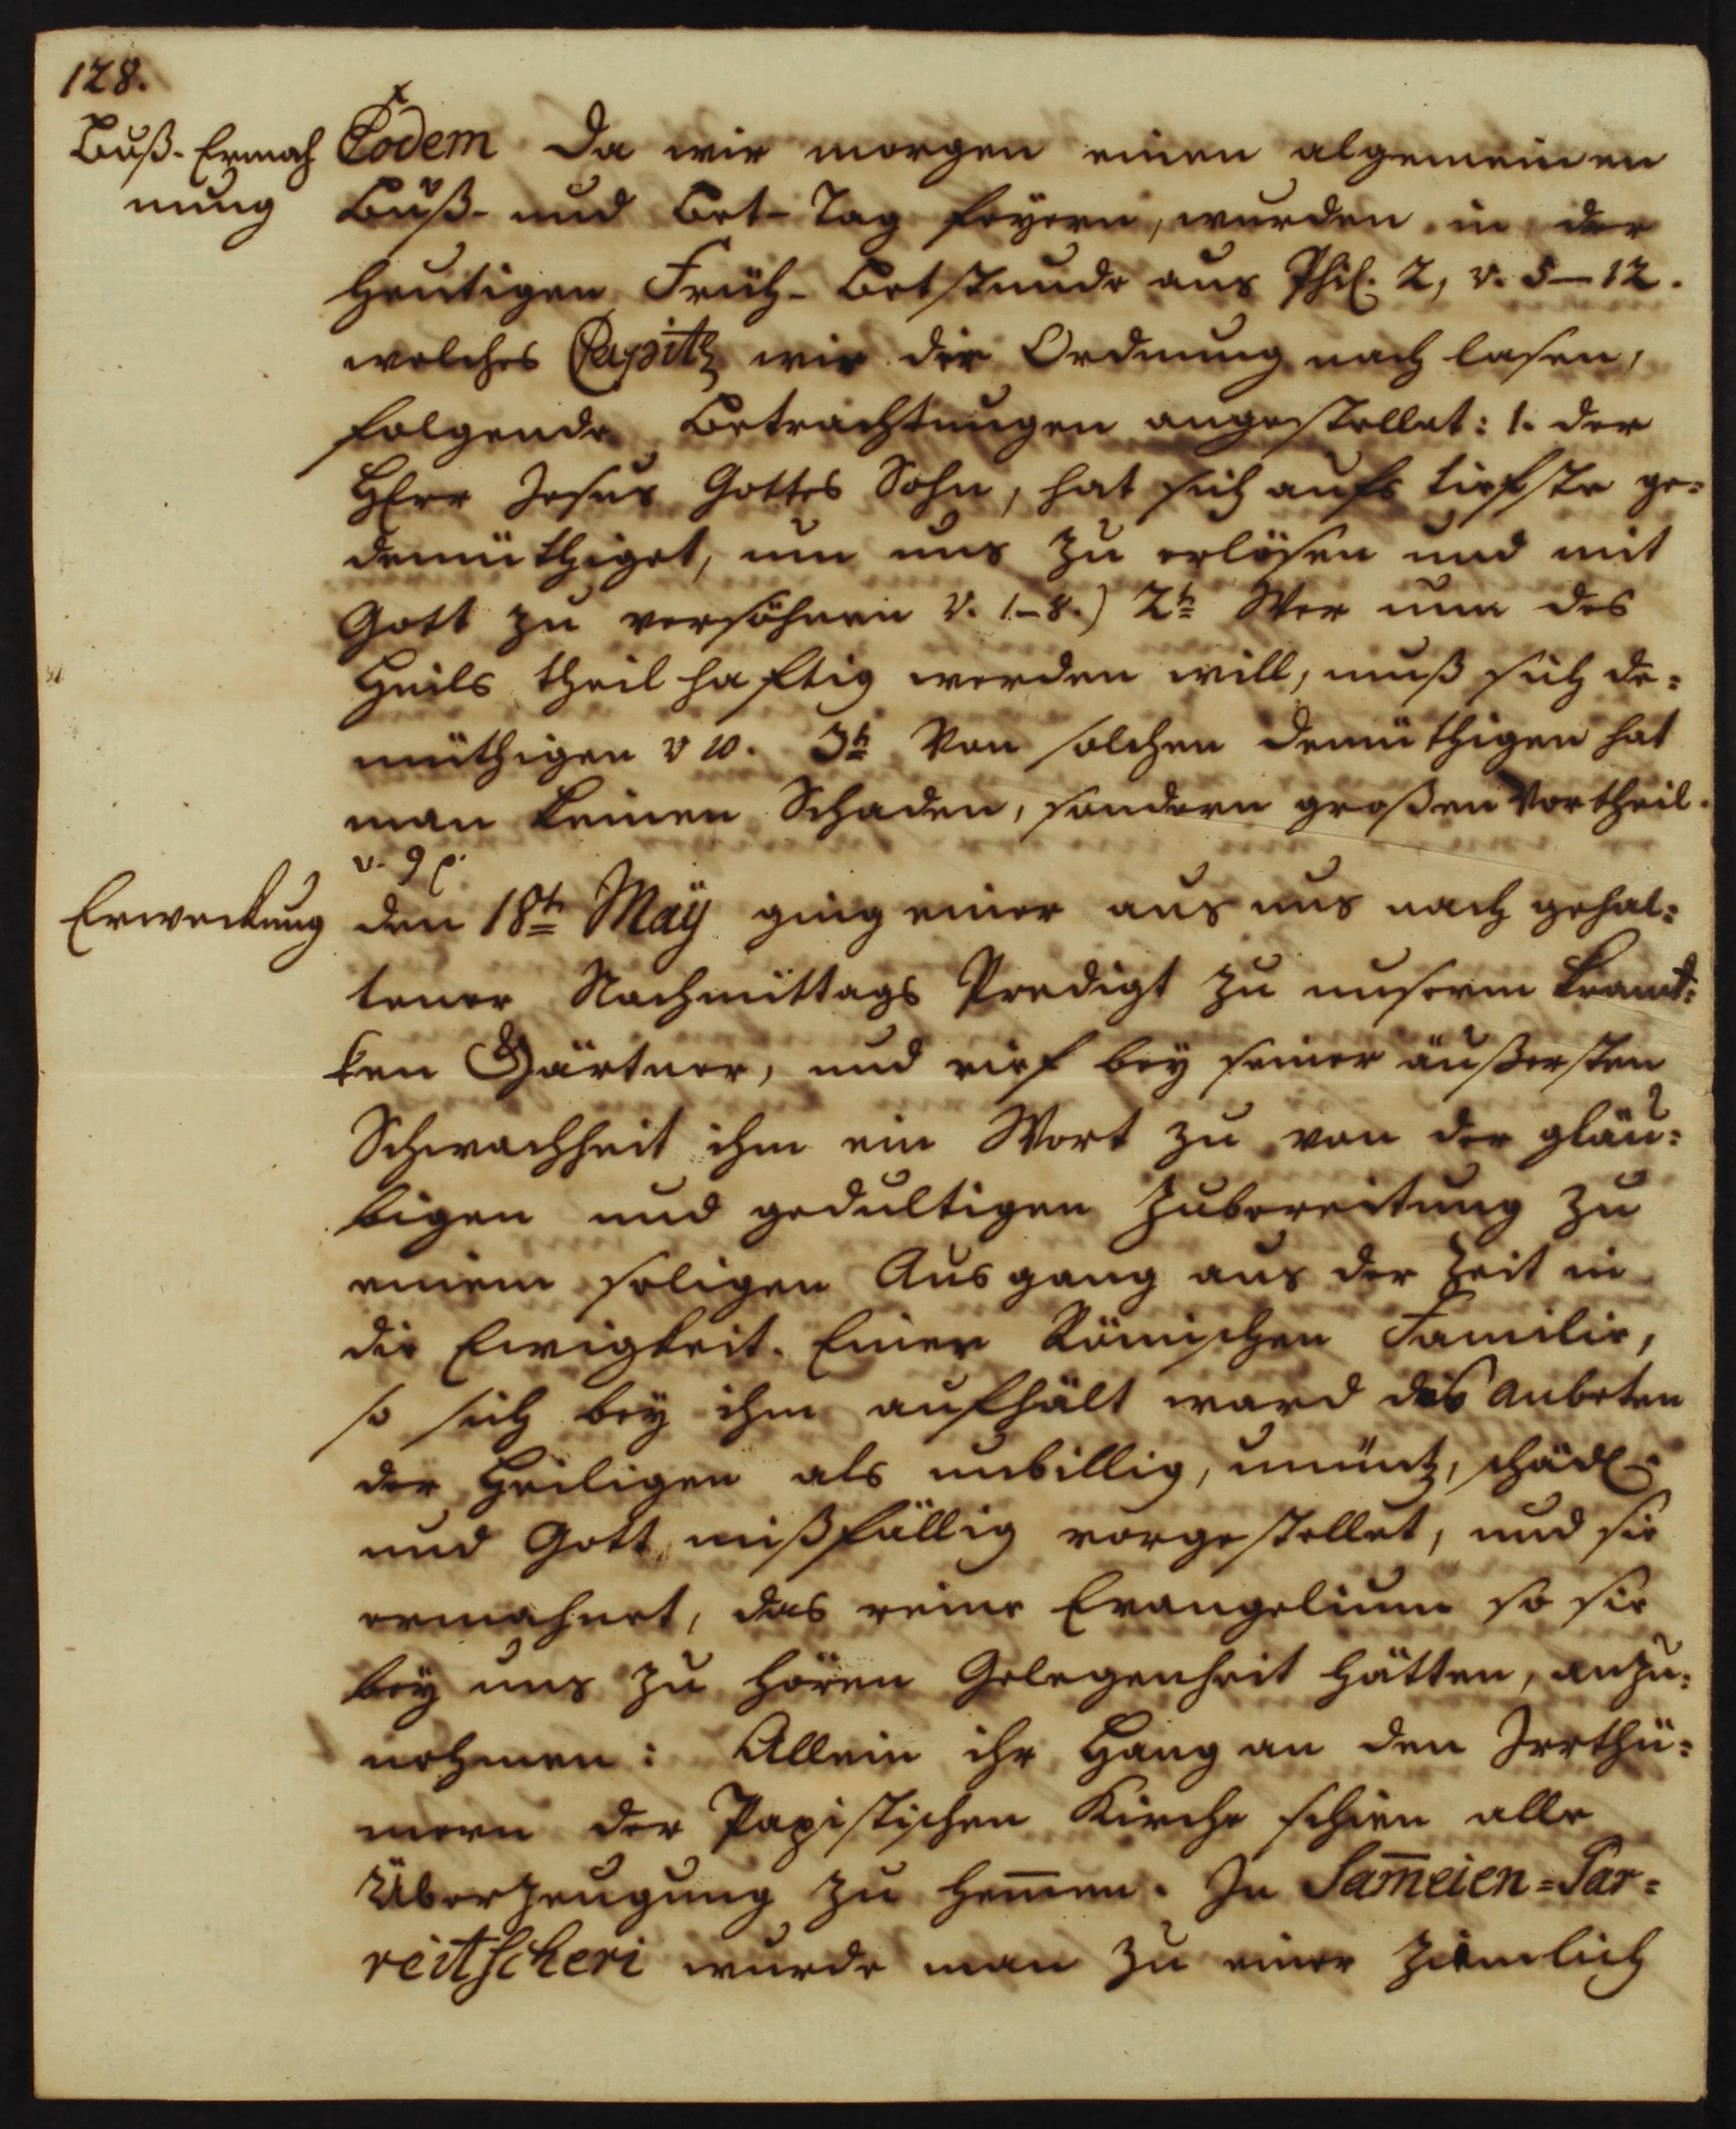 128.
Buß-Ermah
nung
Eodem Da wir morgen einen algemeinen
Buß- und Bet-Tag feyern, wurden in der
heutigen Früh-Betstunde aus Phil. 2, v. 5–12.
welches Capitl wir der Ordnung nach lasen,
folgende Betrachtungen angestellet: 1. der
HErr Jesus Gottes Sohn, hat sich aufs tiefste ge=
demüthiget, um uns zu erlösen und mit
Gott zu versöhnen v. 1–8.) 2t. Wer nun des
Heils theilhafftig werden will, muß sich de=
müthigen v 10. 3t. Von solchen demüthigen hat
man keinen Schaden, sondern großen Vortheil.
v. 9
Erweckung
den 18t. Maÿ ging einer aus uns nach gehal=
tener Nachmittags Predigt zu unserm kranc=
ken Gärtner, und rief bey seiner äußersten
Schwachheit ihm ein Wort zu von der gläu=
bigen und gedultigen Zubereitung zu
einem seligen Ausgang aus der Zeit in
die Ewigkeit. Einer Römischen Familie,
so sich bey ihm aufhält ward das Anbeten
der Heiligen als unbillig, unnütz, schädl.
und Gott mißfällig vorgestellet, und sie
ermahnet, das reine Evangelium so sie
bey uns zu hören Gelegenheit hätten, anzu=
nehmen: Allein ihr Hang an den Irrthü=
mern der Papistischen Kirche schien alle
Überzeugung zu hem̅en. In Sam̅eien=Par=
reitscheri wurde man zu einer ziemlich